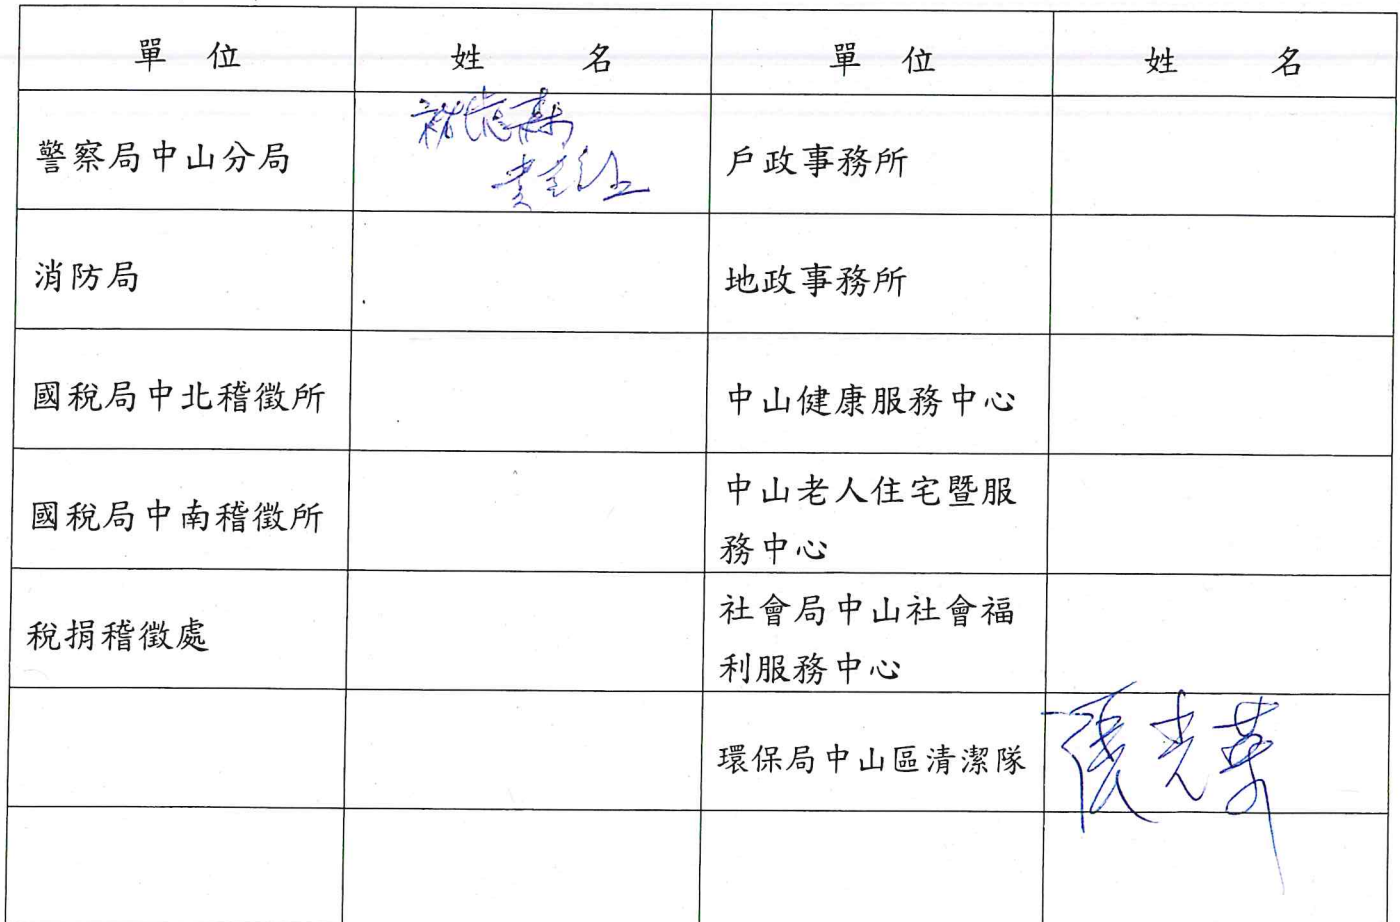 單位 姓名 單位 姓名
警察局中山分局 戶政事務所
消防局 地政事務所
國稅局中北稽徵所 中山健康服務中心
國稅局中南稽徵所 中山老人住宅暨服
務中心
稅捐稽徵處 社會局中山社會福
利服務中心
環保局中山區清潔隊